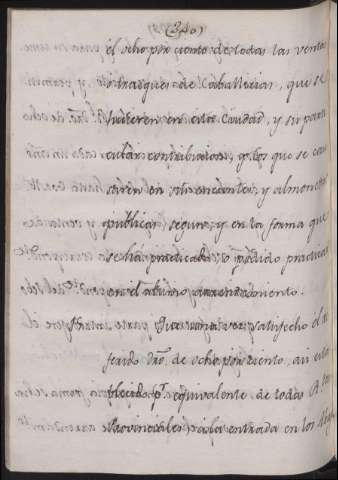 (340)
el ocho por ciento de todas las ventas
o trueques de Caballerias, que se
hicieren en esta Ciudad, y su parti
cular contribucion, y los que se cau
saren en almonedas, y almonedas
publicas segun, y en la forma que
se há practicado, ó podido practicar
en el ultimo arrendamiento.
Que una vez satisfecho el re
ferido dro. de ocho por ciento, asi esta
blecido pr. equivalente de todas Rtas.
Provinciales, á la entrada en los